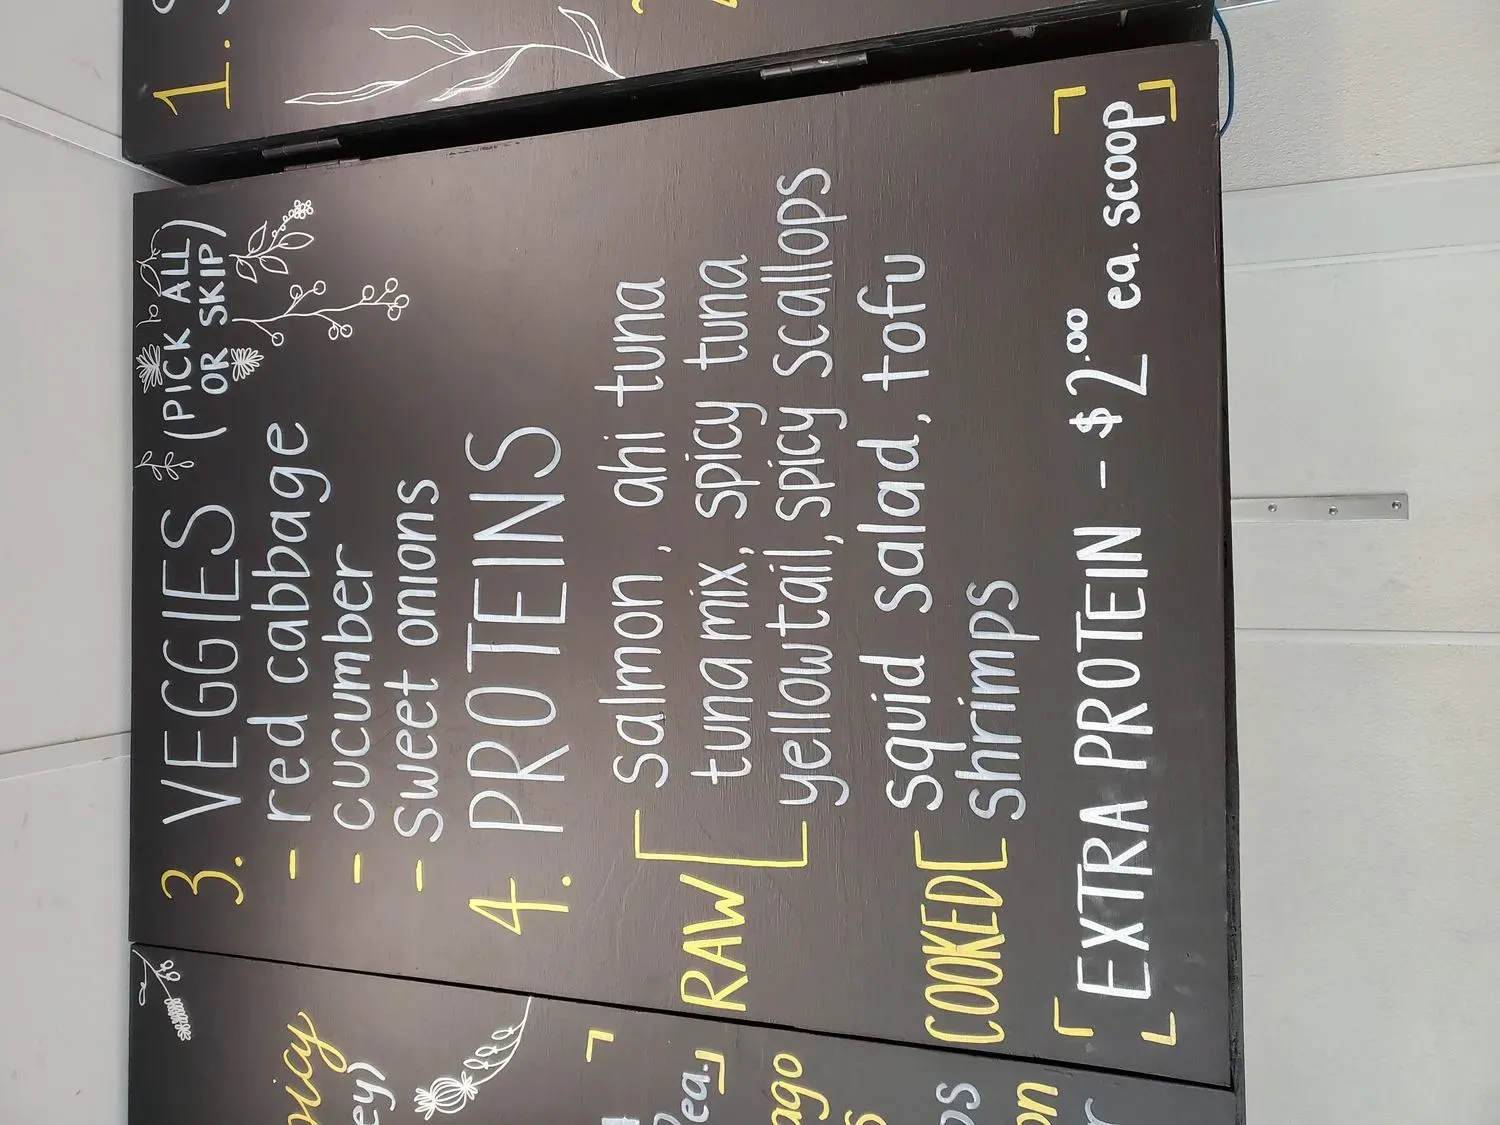 1.
3. VEGGIES (PICK ALL
OR SKIP)
- red cabbage
- cucumber
- sweet onions
4. PROTEINS
RAW [ salmon, ahi tuna
tuna mix, spicy tuna
yellowtail, spicy scallops
COOKED [ squid salad, tofu
shrimps
EXTRA PROTEIN - $2.00 ea. scoop
ea.